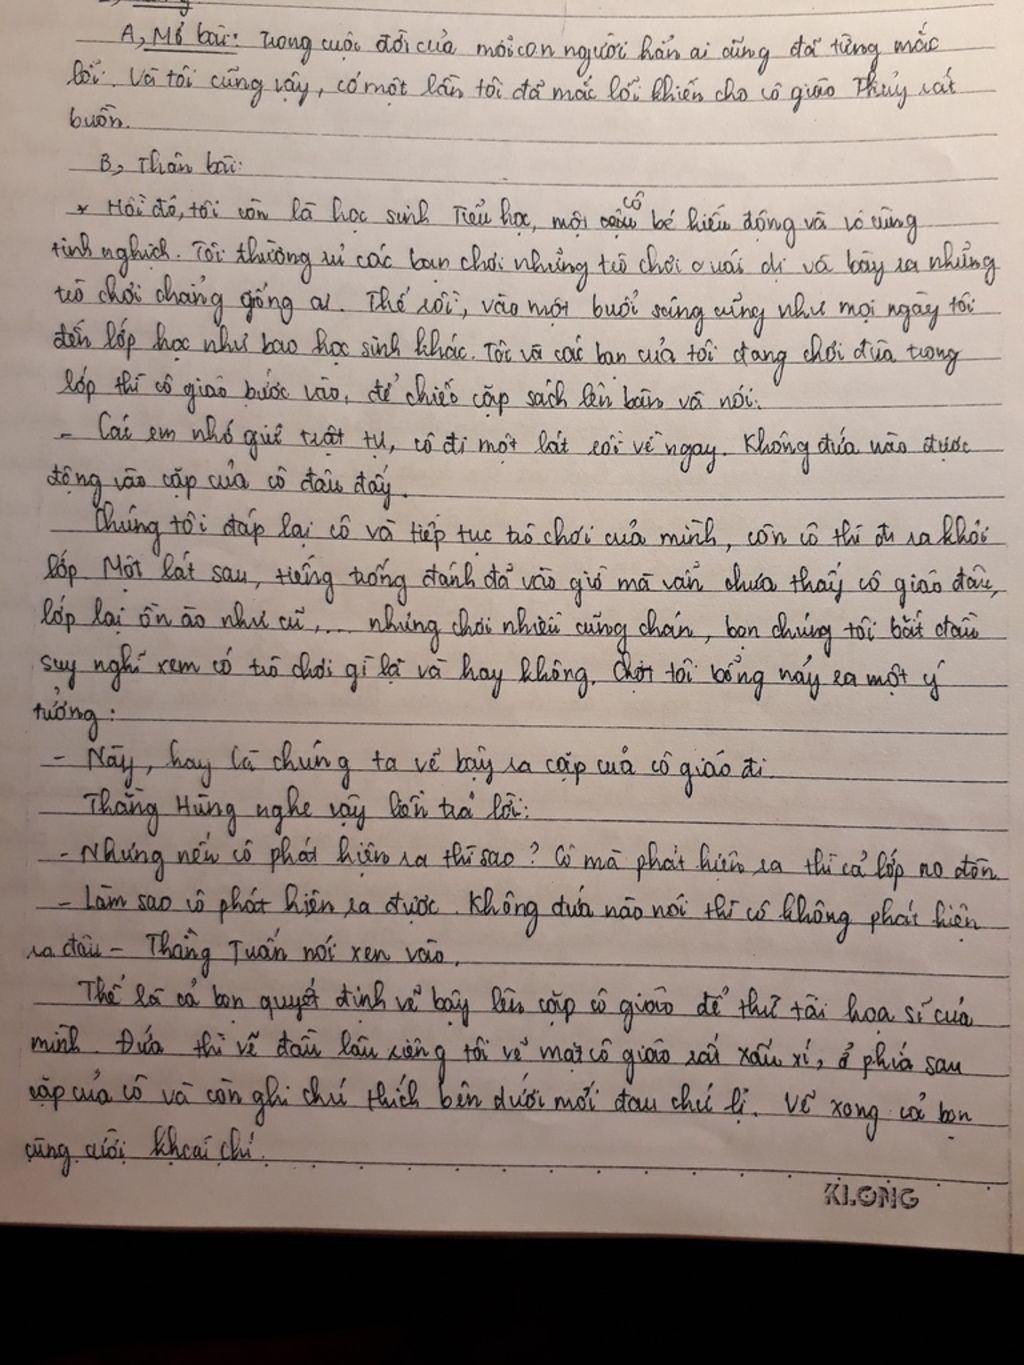 A, Mở bài: Trong cuộc đời của mỗi con người hẳn ai cũng đã từng mắc
lỗi. Và tôi cũng vậy, có một lần tôi đã mắc lỗi khiến cho cô giáo Thủy rất
buồn.
B, Thân bài:
* Hồi đó, tôi còn là học sinh Tiểu học, một cô bé hiếu động và vô cùng
tinh nghịch. Tôi thường rủ các bạn chơi những trò chơi quái dị và bày ra những
trò chơi chẳng giống ai. Thế rồi, vào một buổi sáng cũng như mọi ngày tôi
đến lớp học như bao học sinh khác. Tôi và các bạn của tôi đang chơi đùa trong
lớp thì cô giáo bước vào, để chiếc cặp sách lên bàn và nói:
- Các em nhớ giữ trật tự, cô đi một lát rồi về ngay. Không đứa nào được
động vào cặp của cô đâu đấy.
Chúng tôi đáp lại cô và tiếp tục trò chơi của mình, còn cô thì đi ra khỏi
lớp. Một lát sau, tiếng trống đánh đã vào giờ mà vẫn chưa thấy cô giáo đâu,
lớp lại ồn ào như cũ,... nhưng chơi nhiều cũng chán, bọn chúng tôi bắt đầu
suy nghĩ xem có trò chơi gì lạ và hay không. Chợt tôi bỗng nảy ra một ý
tưởng:
- Này, hay là chúng ta vẽ bậy ra cặp của cô giáo đi.
Thằng Hùng nghe vậy liền trả lời:
- Nhưng nếu cô phát hiện ra thì sao? Cô mà phát hiện ra thì cả lớp no đòn
- Làm sao cô phát hiện ra được. Không đứa nào nói thì cô không phát hiện
ra đâu - Thằng Tuấn nói xen vào.
Thế là cả bọn quyết định vẽ bậy lên cặp cô giáo để thử tài họa sĩ của
mình. Đứa thì vẽ đầu lâu riêng tôi vẽ mặt cô giáo rất xấu xí, ở phía sau
cặp của cô và còn ghi chú thích bên dưới mới đau chứ lị. Vẽ xong cả bọn
cùng cười khoái chí.
KLONG